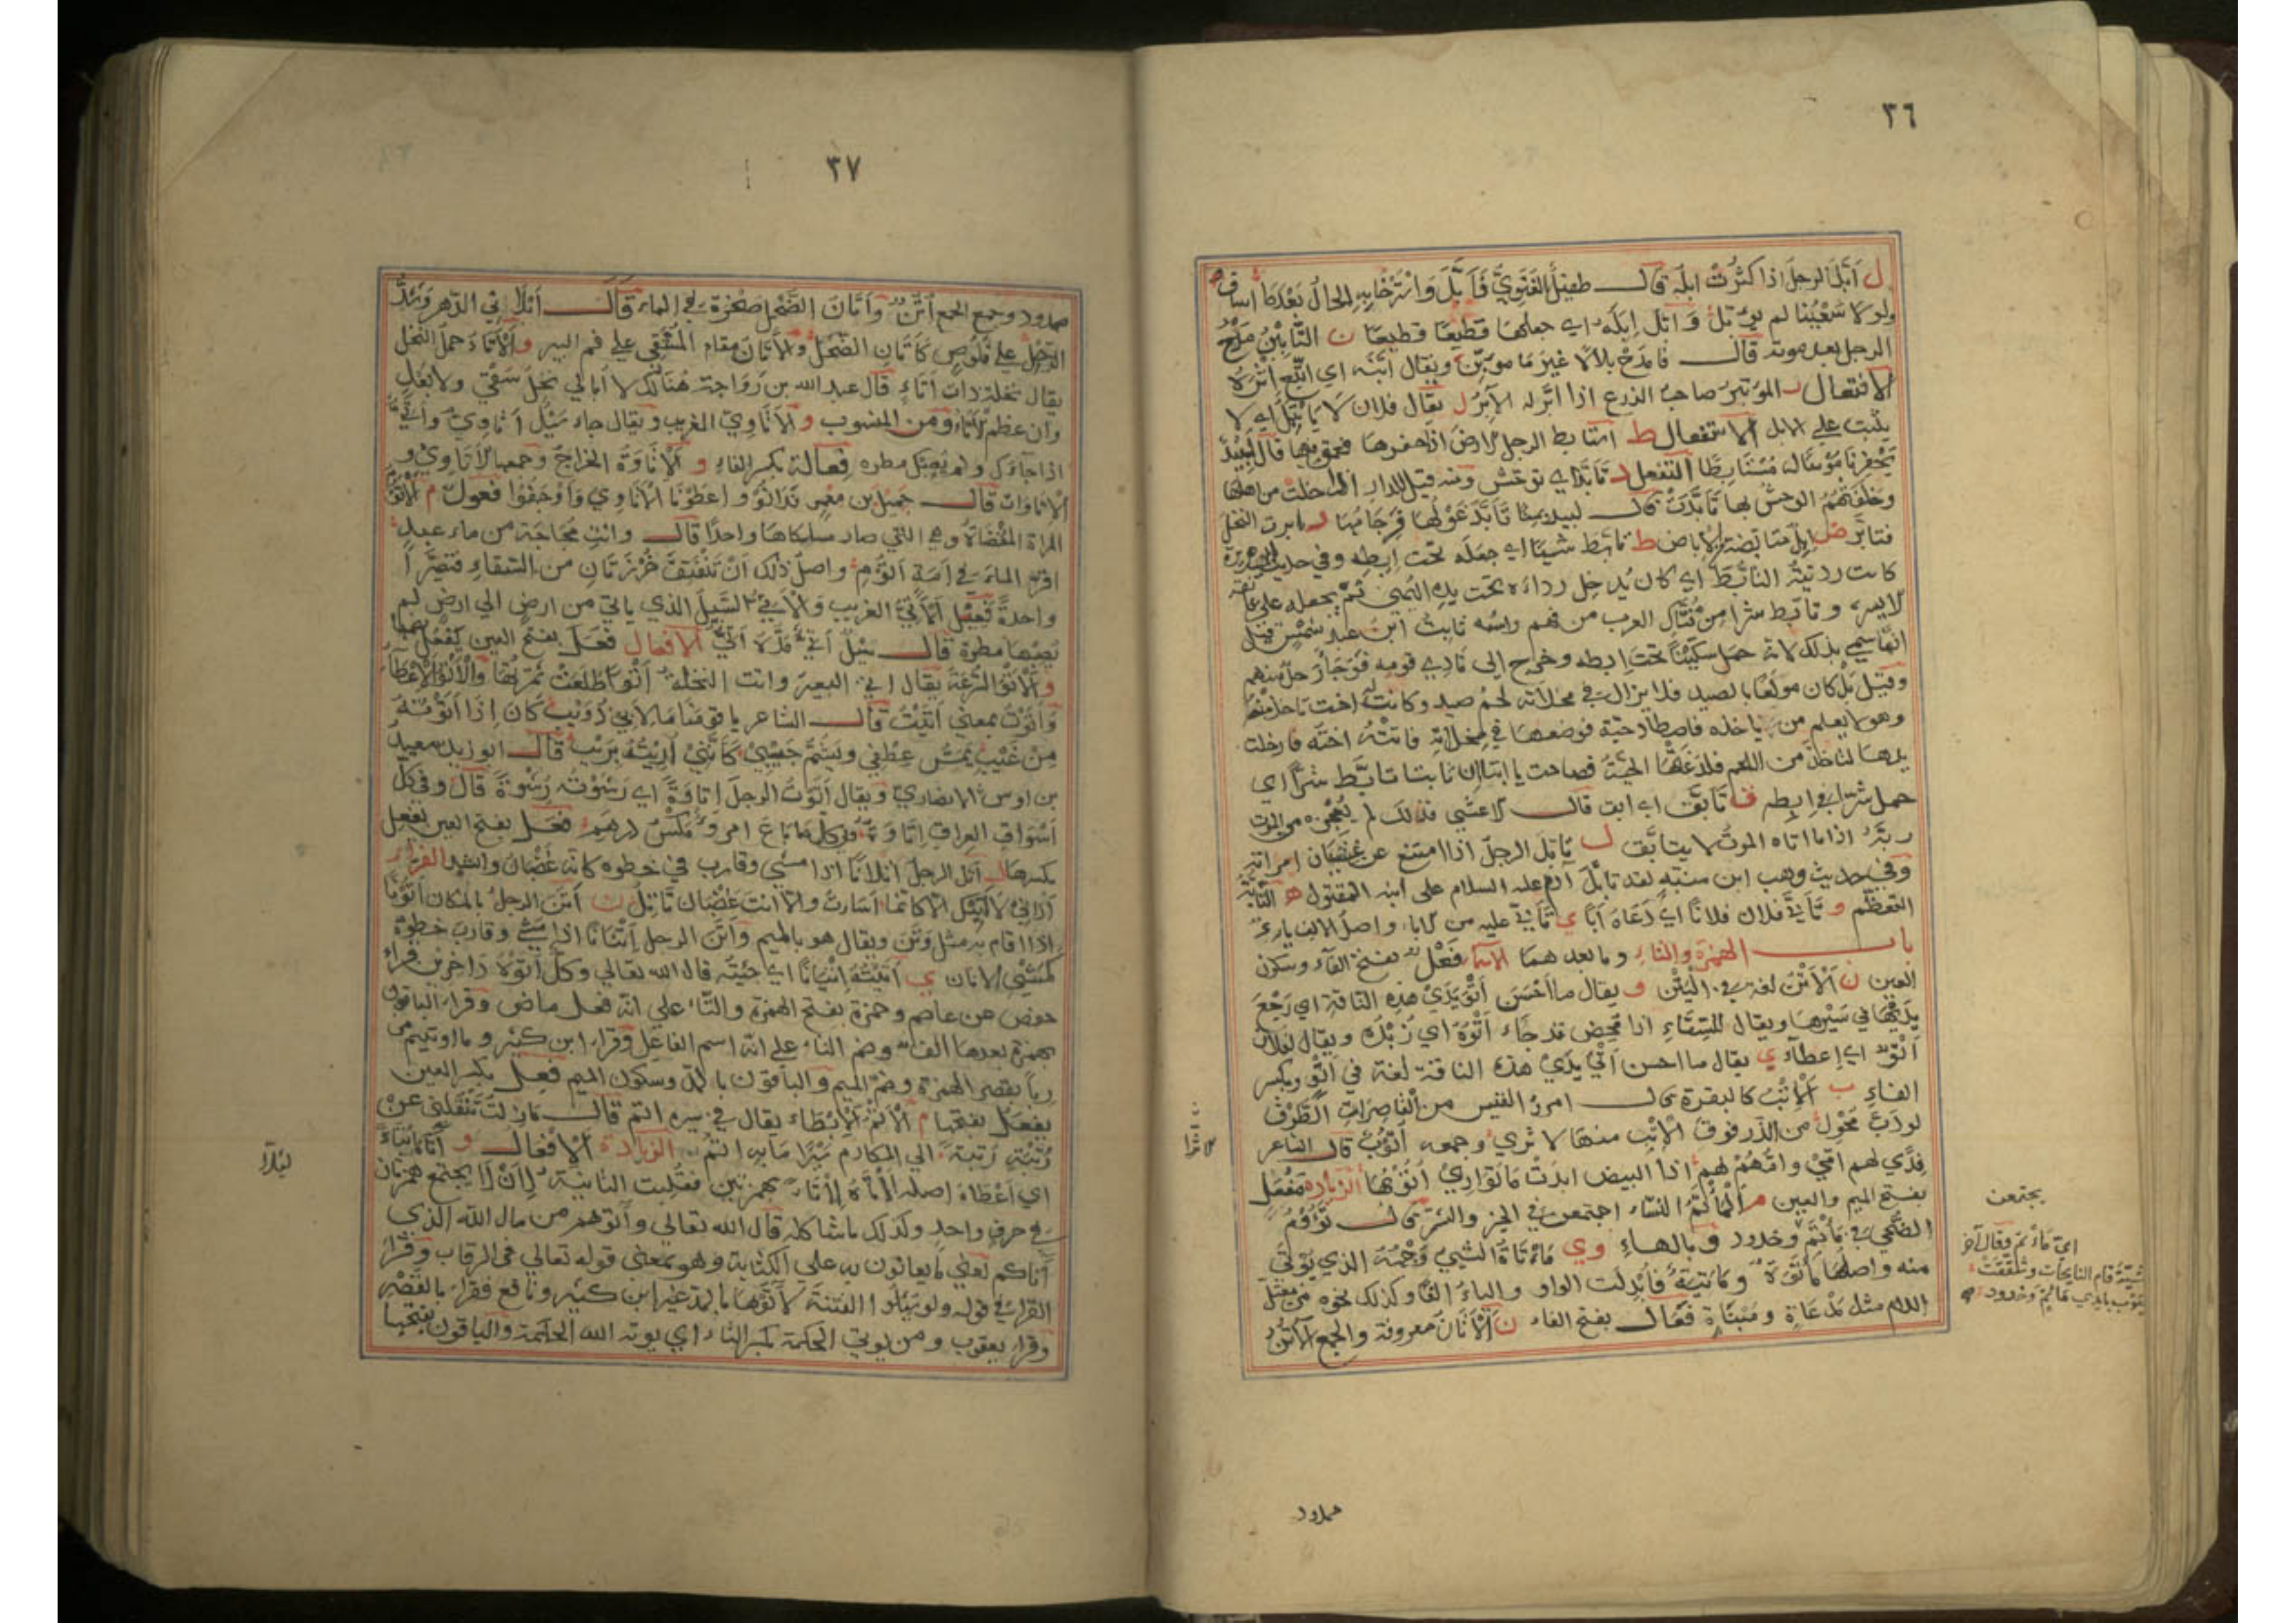 ٣٦
ل أبّل الرجل اذا كثرت ابله قال طفيل الغنوي فأبّل واسترخى به الحال بعدما اساف
ولولا سعينا لم يؤبّل وأبّل إبله اي جعلها قطيعًا قطيعًا ن التأبين مدح
الرجل بعد موته قال فامدح بلالا غير ما مؤبّن ويقال أبّنه اي اتّبع أثره
الافتعال ر المؤتبر صاحب الزرع اذا أبّر له الآبر ل يقال فلان لا يأتبل اي لا
يثبت على الابل الاستفعال ط استأبط الرجل الارض اذا حفرها فعمق بها قال لبيد
يحفر ناموسًا له مستأبطا التفعل د تأبّد اي توحّش ومنه قيل للدار اذا خلت من اهلها
وخلفتهم الوحش بها تأبّدت قال لبيد بمنًا تأبّد غولها فرجامها ر أبرت النخل
فتأبّر ض إبل متأبضة الإباض ط تأبّط شيئا اي جعله تحت إبطه وفي حديث ابي هريرة
كانت رديته التأبّط اي كان يدخل رداءه تحت يده اليمنى ثم يجعله على عاتقه
الايسر وتأبّط شرا من فتّاك العرب من فهم واسمه ثابت ابن عبد شمس قيل
انما سمي بذلك لانه حمل سكينًا تحت إبطه وخرج إلى نادي قومه فوجأ رجلا منهم
وقيل بل كان مولعًا بالصيد فلا يزال في مخلاته لحم صيد وكانت له اخت تاخذ منها
وهو لا يعلم من ياخذه فاصطاد حيّة فوضعها في مخلاته فاتته اخته فادخلت
يدها لتاخذ من اللحم فلدغتها الحيّة فصاحت يا ابتا إن ثابتا تأبّط شرًّا اي
حمل شرا في إبطه ق تأبّق اي ابق قال الاعشى فذلك لم يعجز من الموت
ربّه اذا ما اتاه الموت لا يتأبّق ل تأبّل الرجل اذا امتنع عن غشيان امراته
وفي حديث وهب ابن منبّه لقد تأبّل آدم عليه السلام على ابنه المقتول ه التأبّه
التعظّم و تأبّى فلان فلانًا اي دعاه أبًا ي تأبّى عليه من الاباء واصل الالف ياء
باب الهمزة والتاء وما بعدهما الاسماء فَعْل بفتح الفاء وسكون
العين ن الأتن لغة في اليتن و يقال ما أحسن أتو يدي هذه الناقة اي رجع
يديها في سيرها ويقال للسقاء اذا مخض قد جاء أتوه اي زبده ويقال لفلان
أتو اي إعطاء ي يقال ما احسن أتي يدي هذه الناقة لغة في أتو وبكسر
الفاء ب الإتب كالبقيرة قال امرؤ القيس من القاصرات الطرف
لو دبّ محول من الذر فوق الإتب منها لأثرا وجمعه أتوب قال الشاعر
فدًى لهم امّي وامّهم لهم اذا البيض ابدت ما تواري أتوبها الزيادة مفعل
بفتح الميم والعين م المأتم النساء اجتمعن في الخير والشر قال نؤوم
الضحى في مأتم وخدود وبالهاء وي مأتاة الشيء وجهه الذي يؤتى
منه واصلها مأتوة ومأتية فأبدلت الواو والياء الفًا وكذلك نحوه من معتل
اللام مثل مدعاة ومبناة فعال بفتح الفاء ن الأتان معروفة والجمع الأتن
يجتمعن
اي مأتم وقال آخر
عشيّة قام النايحات وشقّقت
جيوب بايدي مأتم وخدود
لأثرا
ممدود
٣٧
ممدود وجمع الجمع أتن وأتان الضحل صخرة في الماء قال
الرحل على قلوص كأتان الضحل والأتان مقام المستقي على فم البير و الأتاء حمل النخل
يقال نخلة ذات أتاء قال عبد الله بن رواحة هنالك لا أبالي نخل سقي ولا بعل
وان عظم الأتاء ومن المنسوب و الأتاوي الغريب ويقال جاء سيل أتاوي وأتي
اذا جاءك ولم يصبك مطره فعالة بكسر الفاء و الإتاوة الخراج وجمعها الأتاوي و
الاتاوات قال جميل بن معمر واعطونا الأتاوي وأوجفوا فعول م الأتوم
المراة المفضاة وهي التي صار مسلكاها واحدًا قال وانت مجاجة من ماء عبد
اقر الماء في امة أتوم واصل ذلك أن تنفتق خرزتان من السقاء فتصيرا
واحدة فعيل الأتي الغريب والأتي السيل الذي ياتي من ارض الى ارض لم
يصبها مطره قال سيل أتي مدّه أتي الافعال فعل بفتح العين يفعل بضمها
و الأتو السرعة يقال أتى البعير وأتت النخلة أتوا طلعت ثمرتها والأتو الإعطاء
وأتوت بمعنى أتيت قال الشاعر يا قوم ما لي وابي ذؤيب كان اذا أتوته
من غيب يمسّ عطفي ويشمّ جيبي كأنني أربته بريب قال ابو زيد سعيد
بن اوس الانصاري ويقال أتوت الرجل إتاوة اي رشوته رشوة قال وفي كل
أسواق العراق إتاوة وفي كل ما باع امرؤ مكس درهم فعل بفتح العين يفعل
بكسرها ل أتل الرجل أتلانًا اذا مشى وقارب في خطوه كانه غضبان وانشد الفراء
أراني لا آتيك الا كأنما أسأت وإلا انت غضبان تأتل ن أتن الرجل بالمكان أتونًا
اذا اقام به مثل وتن ويقال هو بالميم وأتن الرجل أتنانًا اذا مشى وقارب خطوه
كمشي الاتان ي أتيته إتيانًا اي جئته قال الله تعالى وكل أتوه داخرين قراء
حفص عن عاصم وحمزة بفتح الهمزة والتاء على انه فعل ماض وقراء الباقون
بهمزة بعدها الف وضم التاء على انه اسم الفاعل وقراء ابن كثير وما اوتيتم من
ربا بقصر الهمزة وضم الميم والباقون بالمد وسكون الميم فعل بكسر العين
يفعل بفتحها م الأتم الإبطاء يقال في سيره أتم قال
رتبة رتبة الى المكارم سيرًا ما به أتم الزيادة الافعال و آتاه إيتاء
اي أعطاه اصله بهمزتين فقلبت الثانية لأن لا يجتمع همزتان
في حرف واحد وكذلك ما شاكله قال الله تعالى وآتوهم من مال الله الذي
آتاكم تعني ما يعانون به على الكتابة وهو بمعنى قوله تعالى في الرقاب وقرا
القراء في قوله ولو سئلوا الفتنة لآتوها بالمد غير ابن كثير ونافع فقراء بالقصر
وقراء يعقوب ومن يوتي الحكمة بكسر التاء اي يوته الله الحكمة والباقون بفتحها
ليلا